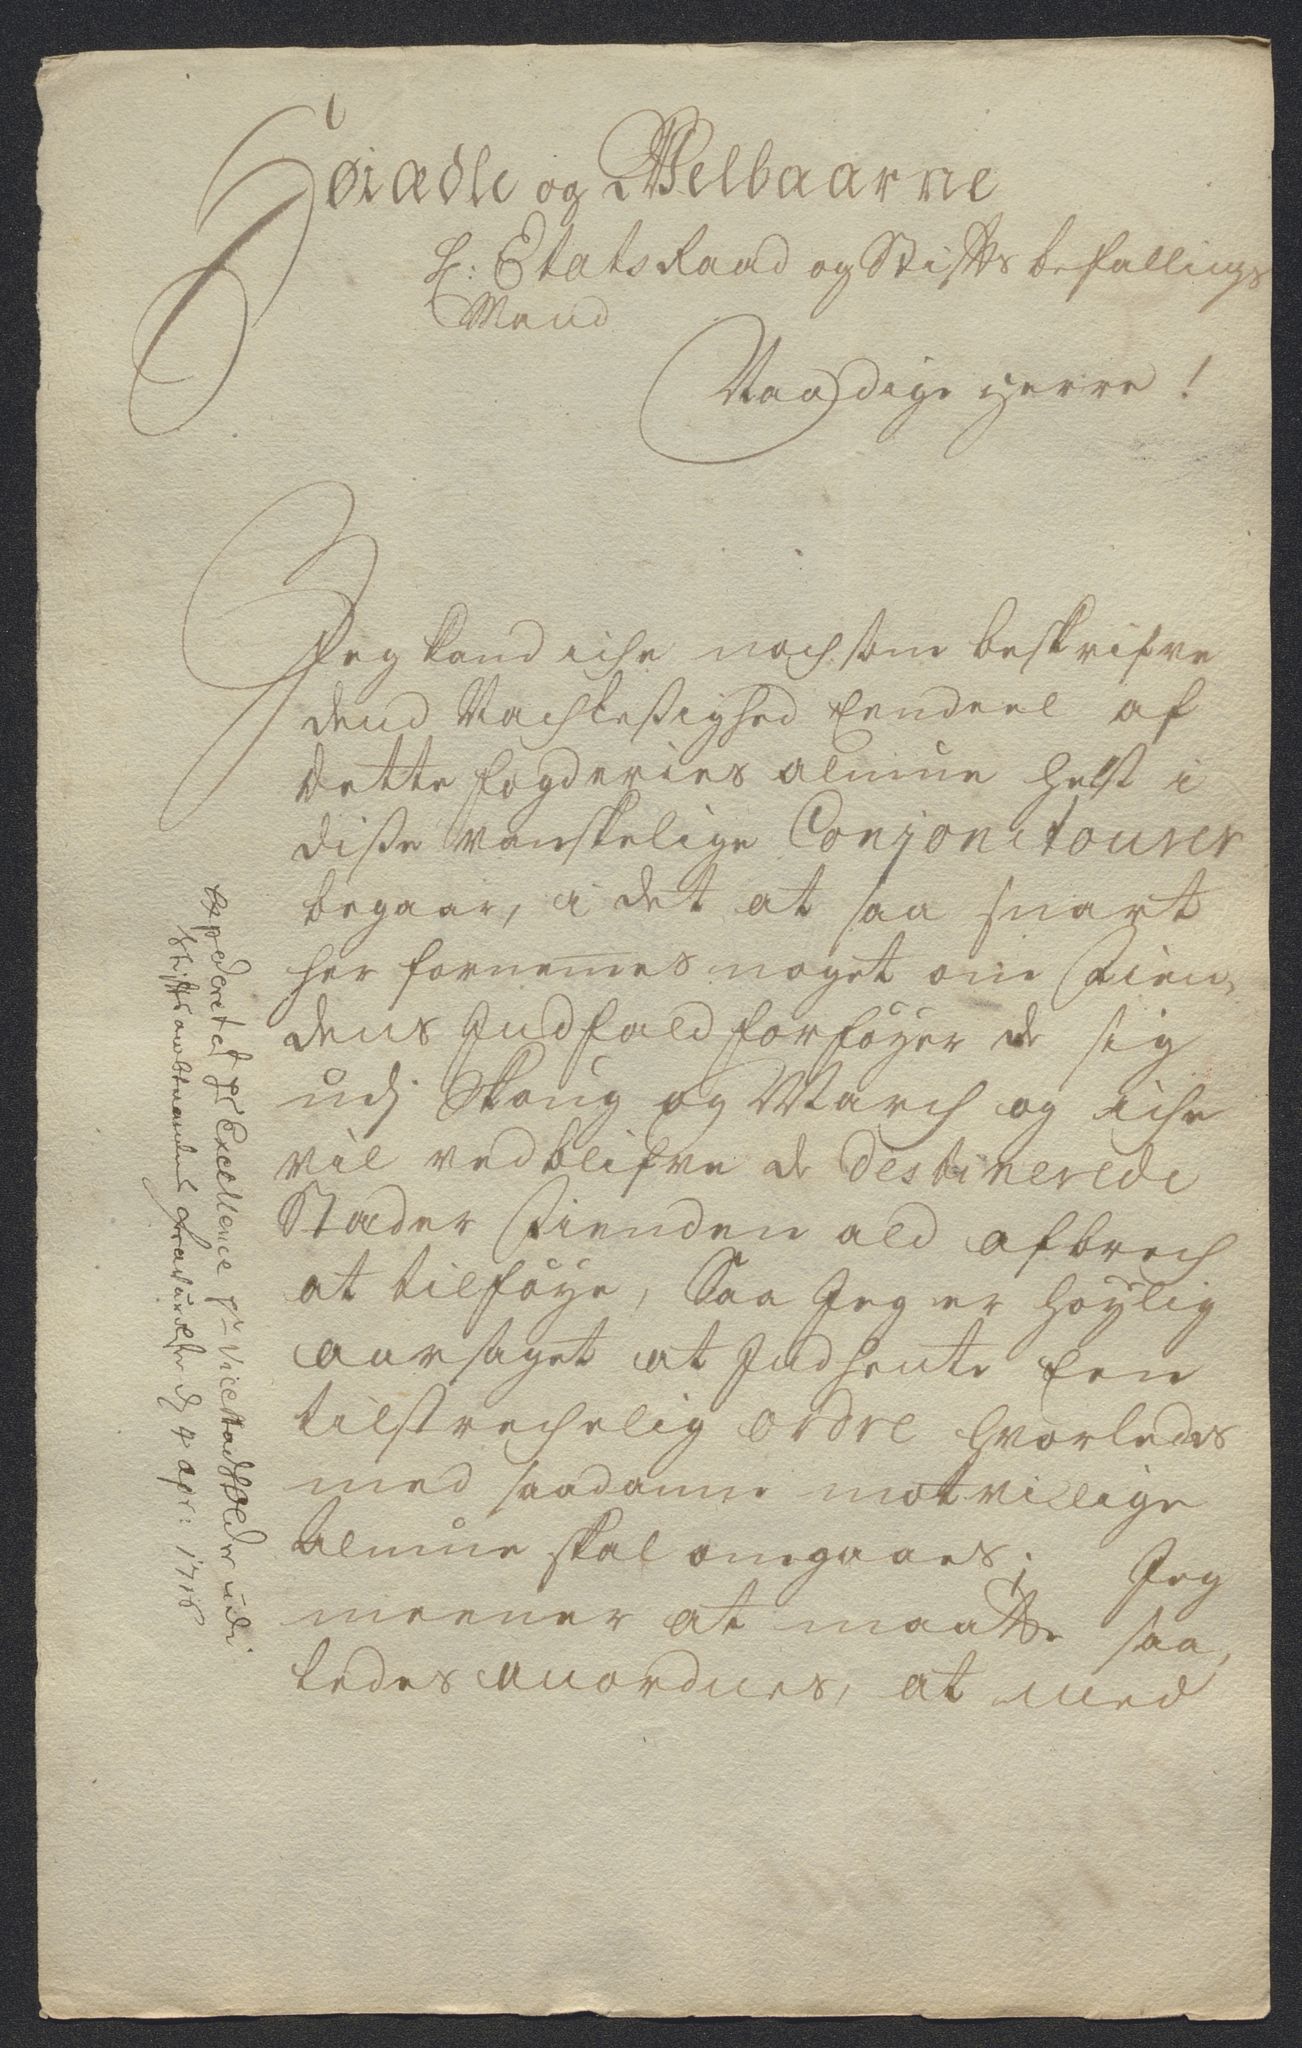 Høiædle og Welbaarne
H: EtatsRaad og Stifts befallings
Mand
Naadige Herre!
Jeg kand iche nochsom beskrifve
dend Nachleßighed Eendeel af
dette fogderies almue helst i
diße vanskelige Conjonctourer
begaar, i det at saa snart
her fornemmes noget om Fien,
dens Indfald forføyer de sig
udj Skoug og March og iche
vil vedblifve de destinerede
Stæder Fienden ald afbrech
at tilføye, Saa Jeg er høylig
aarsaget at Indhente Een
tilstrechelig ordre hvorledes
med saadanne motvillige
almue skal omgaaes; Jeg
meener at maatte saa,
ledes anordnes, at med
Expederet af hr Excellence hr Vice Stadtholder udi
Stiftsambtmandens fraværelse d 4 apr: 1718